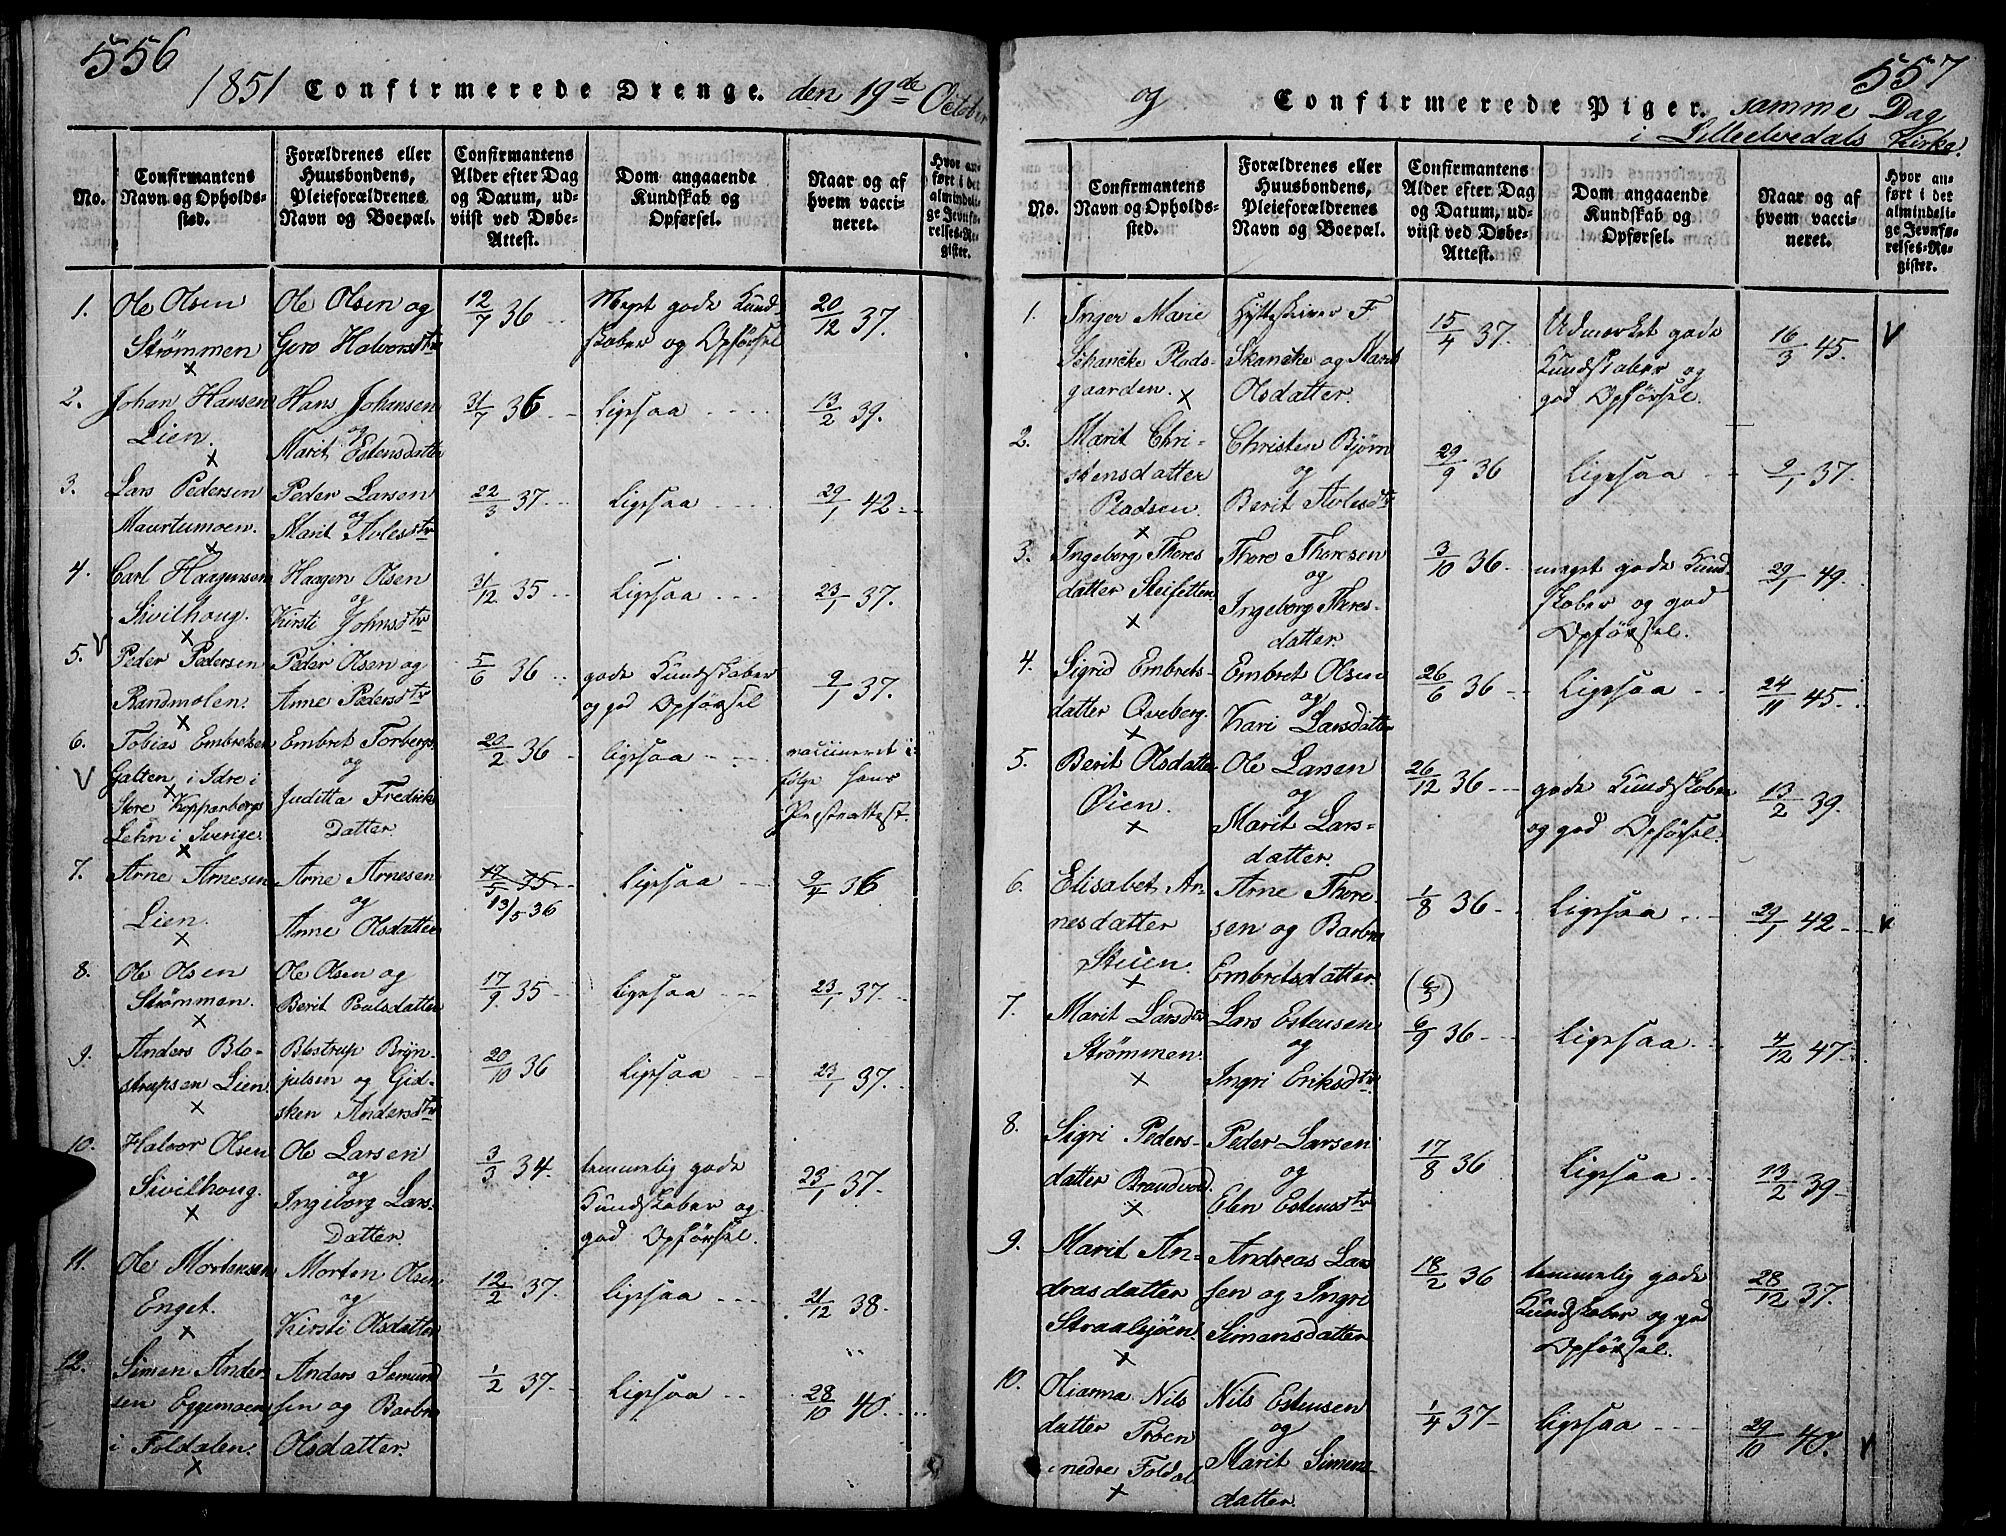 556
1851 Confirmerede Drenge. den 19de October
No.
Confirmantens Navn og Opholdssted.
Forældrenes eller Huusbondens, Pleieforældrenes Navn og Boepæl.
Confirmantens Alder efter Dag og Datum, udviist ved Døbe-Attest.
Dom angaaende Kundskab og Opførsel.
Naar og af hvem vaccineret.
Hvor anført i det almindelige Jevnførelses-Register.
1. Ole Olsen Ole Olsen og 12/7 36 Meget gode Kund- 20/12 37.
Strømmen Goro Halvorsdtr skaber og Opførsel
2. Johan Hansen Hans Johansen 31/7 36 ligesaa 13/2 39.
Lien. og
Marit Estensdatter
3. Lars Pedersen Peder Larsen 22/3 37 ligesaa 29/1 42
og
Maurtumoen. Marit Avlesdtr
4. Carl Haagensen Haagen Olsen 31/12 35 ligesaa 23/1 37.
og
Sivilhoug. Kirsti Johnsdtr
5. V Peder Pedersen Peder Olsen og 5/6 36 gode Kundskaber 9/1 37.
Randmolen. Anne Pedersdtr og god Opførsel
6. Tobias Embretsen Embret Torbergs 20/2 36 ligesaa vaccineret i
V Galten i Idre i og følge hans
Store Kopparbergs Juditta Fredriks Præsteattest.
Lehn i Sverige. Datter
7. Arne Arnesen Arne Arnesen 17/5 35 ligesaa 9/1 36
og 13/5 36
Lien. Anne Olsdatter
8. Ole Olsen Ole Olsen og 17/9 35 ligesaa 23/1 37
Strømmen. Berit Poulsdatter
9. Anders Blo- Blostrup Bryn- 20/10 36 ligesaa 23/1 37.
strupsen Lien julsen og Gid-
sken Andersdtr
10. Halvor Olsen Ole Larsen 3/3 34. temmelig gode 23/1 37.
og
Sivilhoug. Ingeborg Lars- Kundskaber og
Datter. god Opførsel.
11. Ole Mortensen Morten Olsen 12/2 37. ligesaa 21/12 38.
og
Enget. Kirsti Olsdatter
12. Simen Ander Anders Semund 1/2 37. ligesaa 28/10 40.
sen Eggemoen sen og Barbro
i Foldalen. Olsdatter.
557
og Confirmerede Piger. samme Dag
i Lilleelvedals Kirke.
No.
Confirmantens Navn og Opholdssted.
Forældrenes eller Huusbondens, Pleieforældrenes Navn og Boepæl.
Confirmantens Alder efter Dag og Datum, udviist ved Døbe-Attest.
Dom angaaende Kundskab og Opførsel.
Naar og af hvem vaccineret.
Hvor anført i det almindelige Jevnførelses-Register.
1. Inger Marie Hytteskriver F 15/4 37. Udmærket gode 16/3 45. V
Schancke Plads- Skancke og Marit Kundskaber og
gaarden. Olsdatter. god Opførsel.
2. Marit Chri- Christen Bjørn 29/9 36 ligesaa 9/1 37.
stensdatter og
Pladsen Berit Avlesdtr
3. Ingeborg Thores Thore Thoresen 3/10 36 meget gode Kund 29/1 49.
datter Steifetten og skaber og god
Ingeborg Thores- Opførsel.
datter.
4. Sigrid Embrets- Embret Olsen 26/6 36 ligesaa 24/11 45
og
datter Qveberg. Kari Larsdatter
5. Berit Olsdatter Ole Larsen 26/12 36 gode Kundskaber 13/2 39.
og
Øien. Marit Lars- og god Opførsel.
datter
6. Elisabet Ar- Arne Thore- 1/8 36 ligesaa 29/1 42 V
nesdatter sen og Barbro
Steien. Embretsdatter.
7. Marit Larsdtr Lars Estensen (6/5) 6/9 36 ligesaa 4/12 47
og
Strømmen. Ingri Eriksdtr
8. Sigri Peders- Peder Larsen 17/8 36 ligesaa 13/2 39
og
datter Brandvold. Elen Estensdtr
9. Marit An- Andreas Lar 18/2 36 temmelig gode 28/12 37.
dreasdatter sen og Ingri Kundskaber og god
Straalsjøen. Simensdatter Opførsel.
10. Olianna Nils Nils Estensen 1/4 37 ligesaa 29/10 40. V
datter Trøen og
i nedre Foldal Marit Simens-
datter.